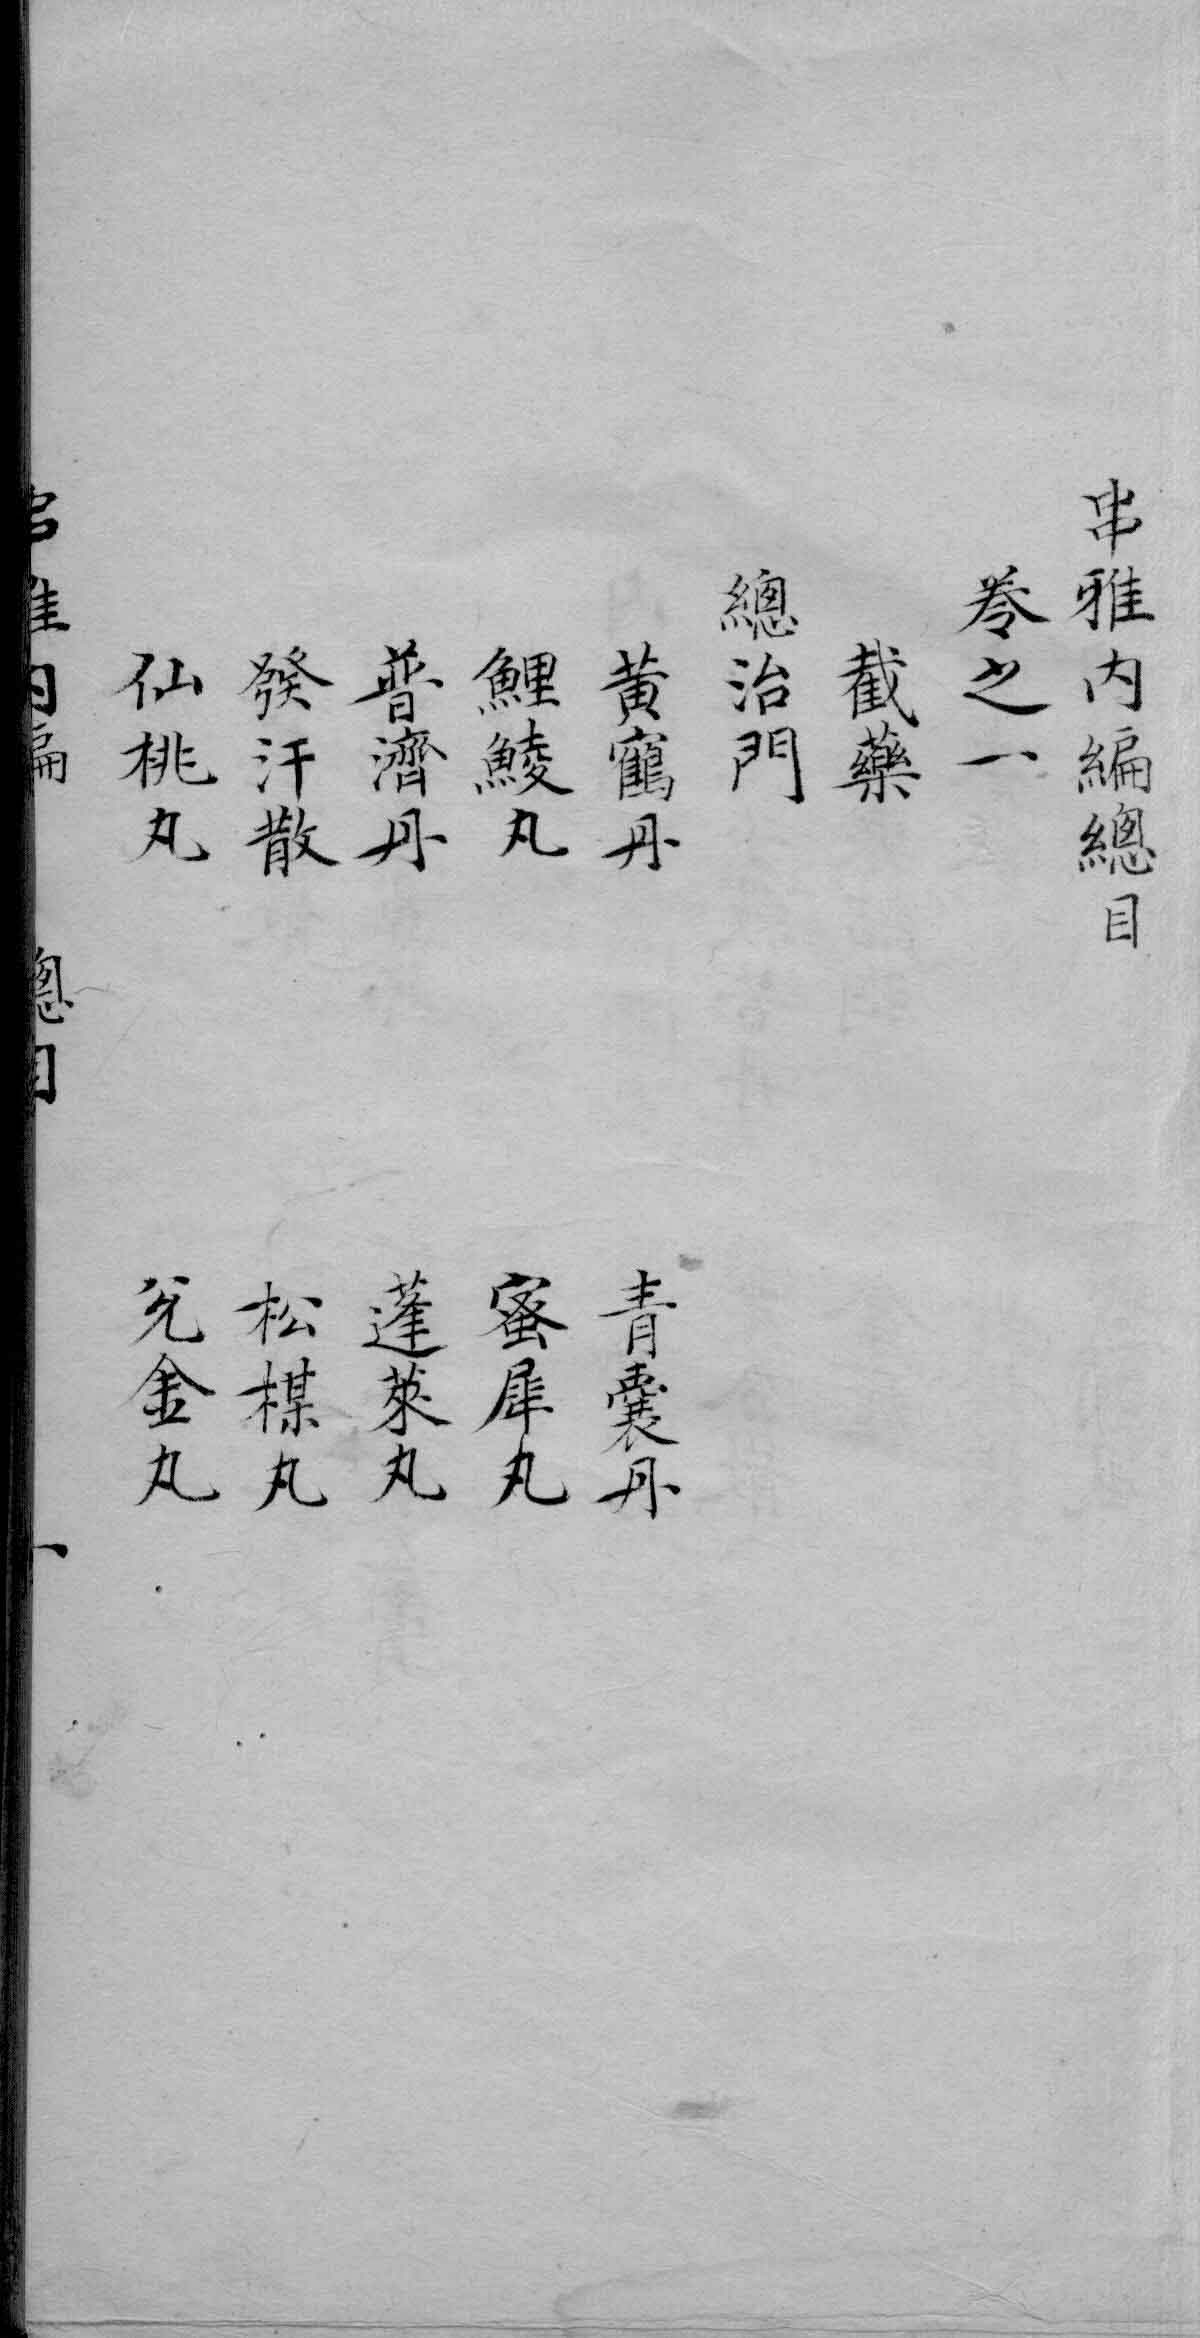 串雅内編總目
卷之一
截藥
總治門
黄鶴丹
青囊丹
鯉鯪丸
蜜犀丸
普濟丹
蓬萊丸
發汗散
松楳丸
仙桃丸
兌金丸
串雅内編 總目 一